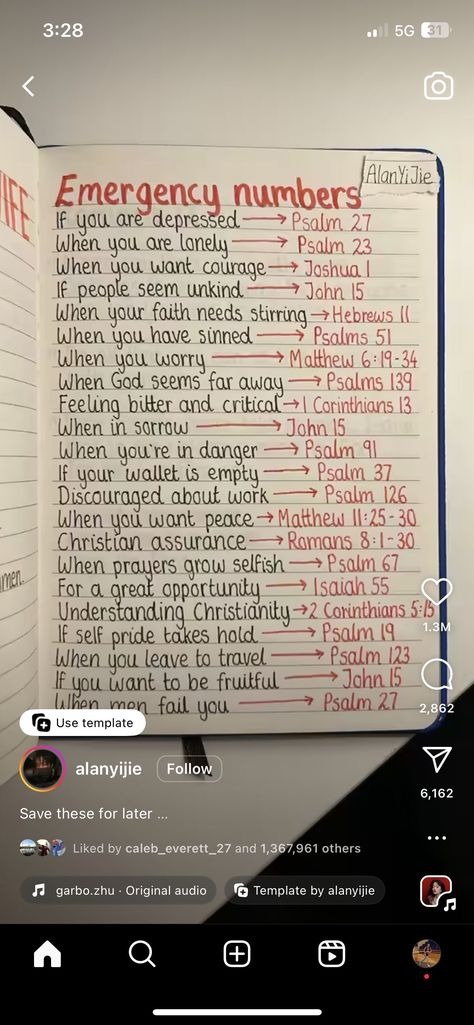 3:28
5G 31
AlanYiJie
IFE
Emergency numbers
If you are depressed → Psalm 27
When you are lonely → Psalm 23
When you want courage → Joshua 1
If people seem unkind → John 15
When your faith needs stirring → Hebrews 11
When you have sinned → Psalms 51
When you worry → Matthew 6:19-34
When God seems far away → Psalms 139
Feeling bitter and critical → 1 Corinthians 13
When in sorrow → John 15
When you're in danger → Psalm 91
If your wallet is empty → Psalm 37
Discouraged about work → Psalm 126
When you want peace → Matthew 11:25-30
Christian assurance → Romans 8:1-30
When prayers grow selfish → Psalm 67
For a great opportunity → Isaiah 55
Understanding Christianity → 2 Corinthians 5:15
If self pride takes hold → Psalm 19
When you leave to travel → Psalm 123
If you want to be fruitful → John 15
When men fail you → Psalm 27
men.
1.3M
2,862
6,162
Use template
alanyijie Follow
Save these for later ...
Liked by caleb_everett_27 and 1,367,961 others
garbo.zhu · Original audio
Template by alanyijie